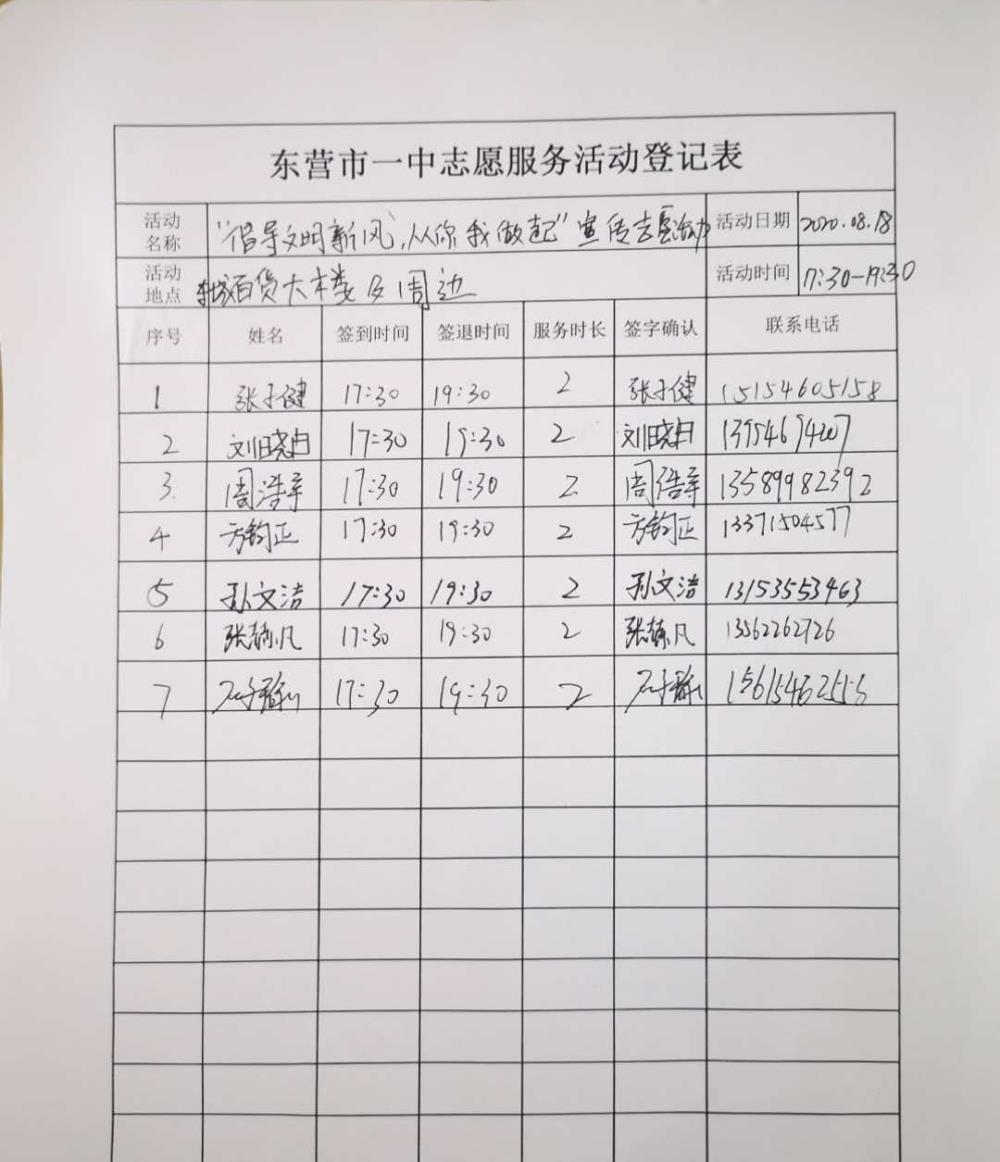 东营市一中志愿服务活动登记表
活动名称 "倡导文明新风,从你我做起"宣传志愿活动 活动日期 2020.08.18
活动地点 东城百货大楼及周边 活动时间 17:30-19:30
序号 姓名 签到时间 签退时间 服务时长 签字确认 联系电话
1 张子健 17:30 19:30 2 张子健 15154605158
2 刘晓白 17:30 19:30 2 刘晓白
3. 周浩宇 17:30 19:30 2 周浩宇 13589982392
4 方钧正 17:30 19:30 2 方钧正 13371504577
5 孙文洁 17:30 19:30 2 孙文洁 13153553463
6 17:30 19:30 2 13562262726
7 17:30 19:30 2